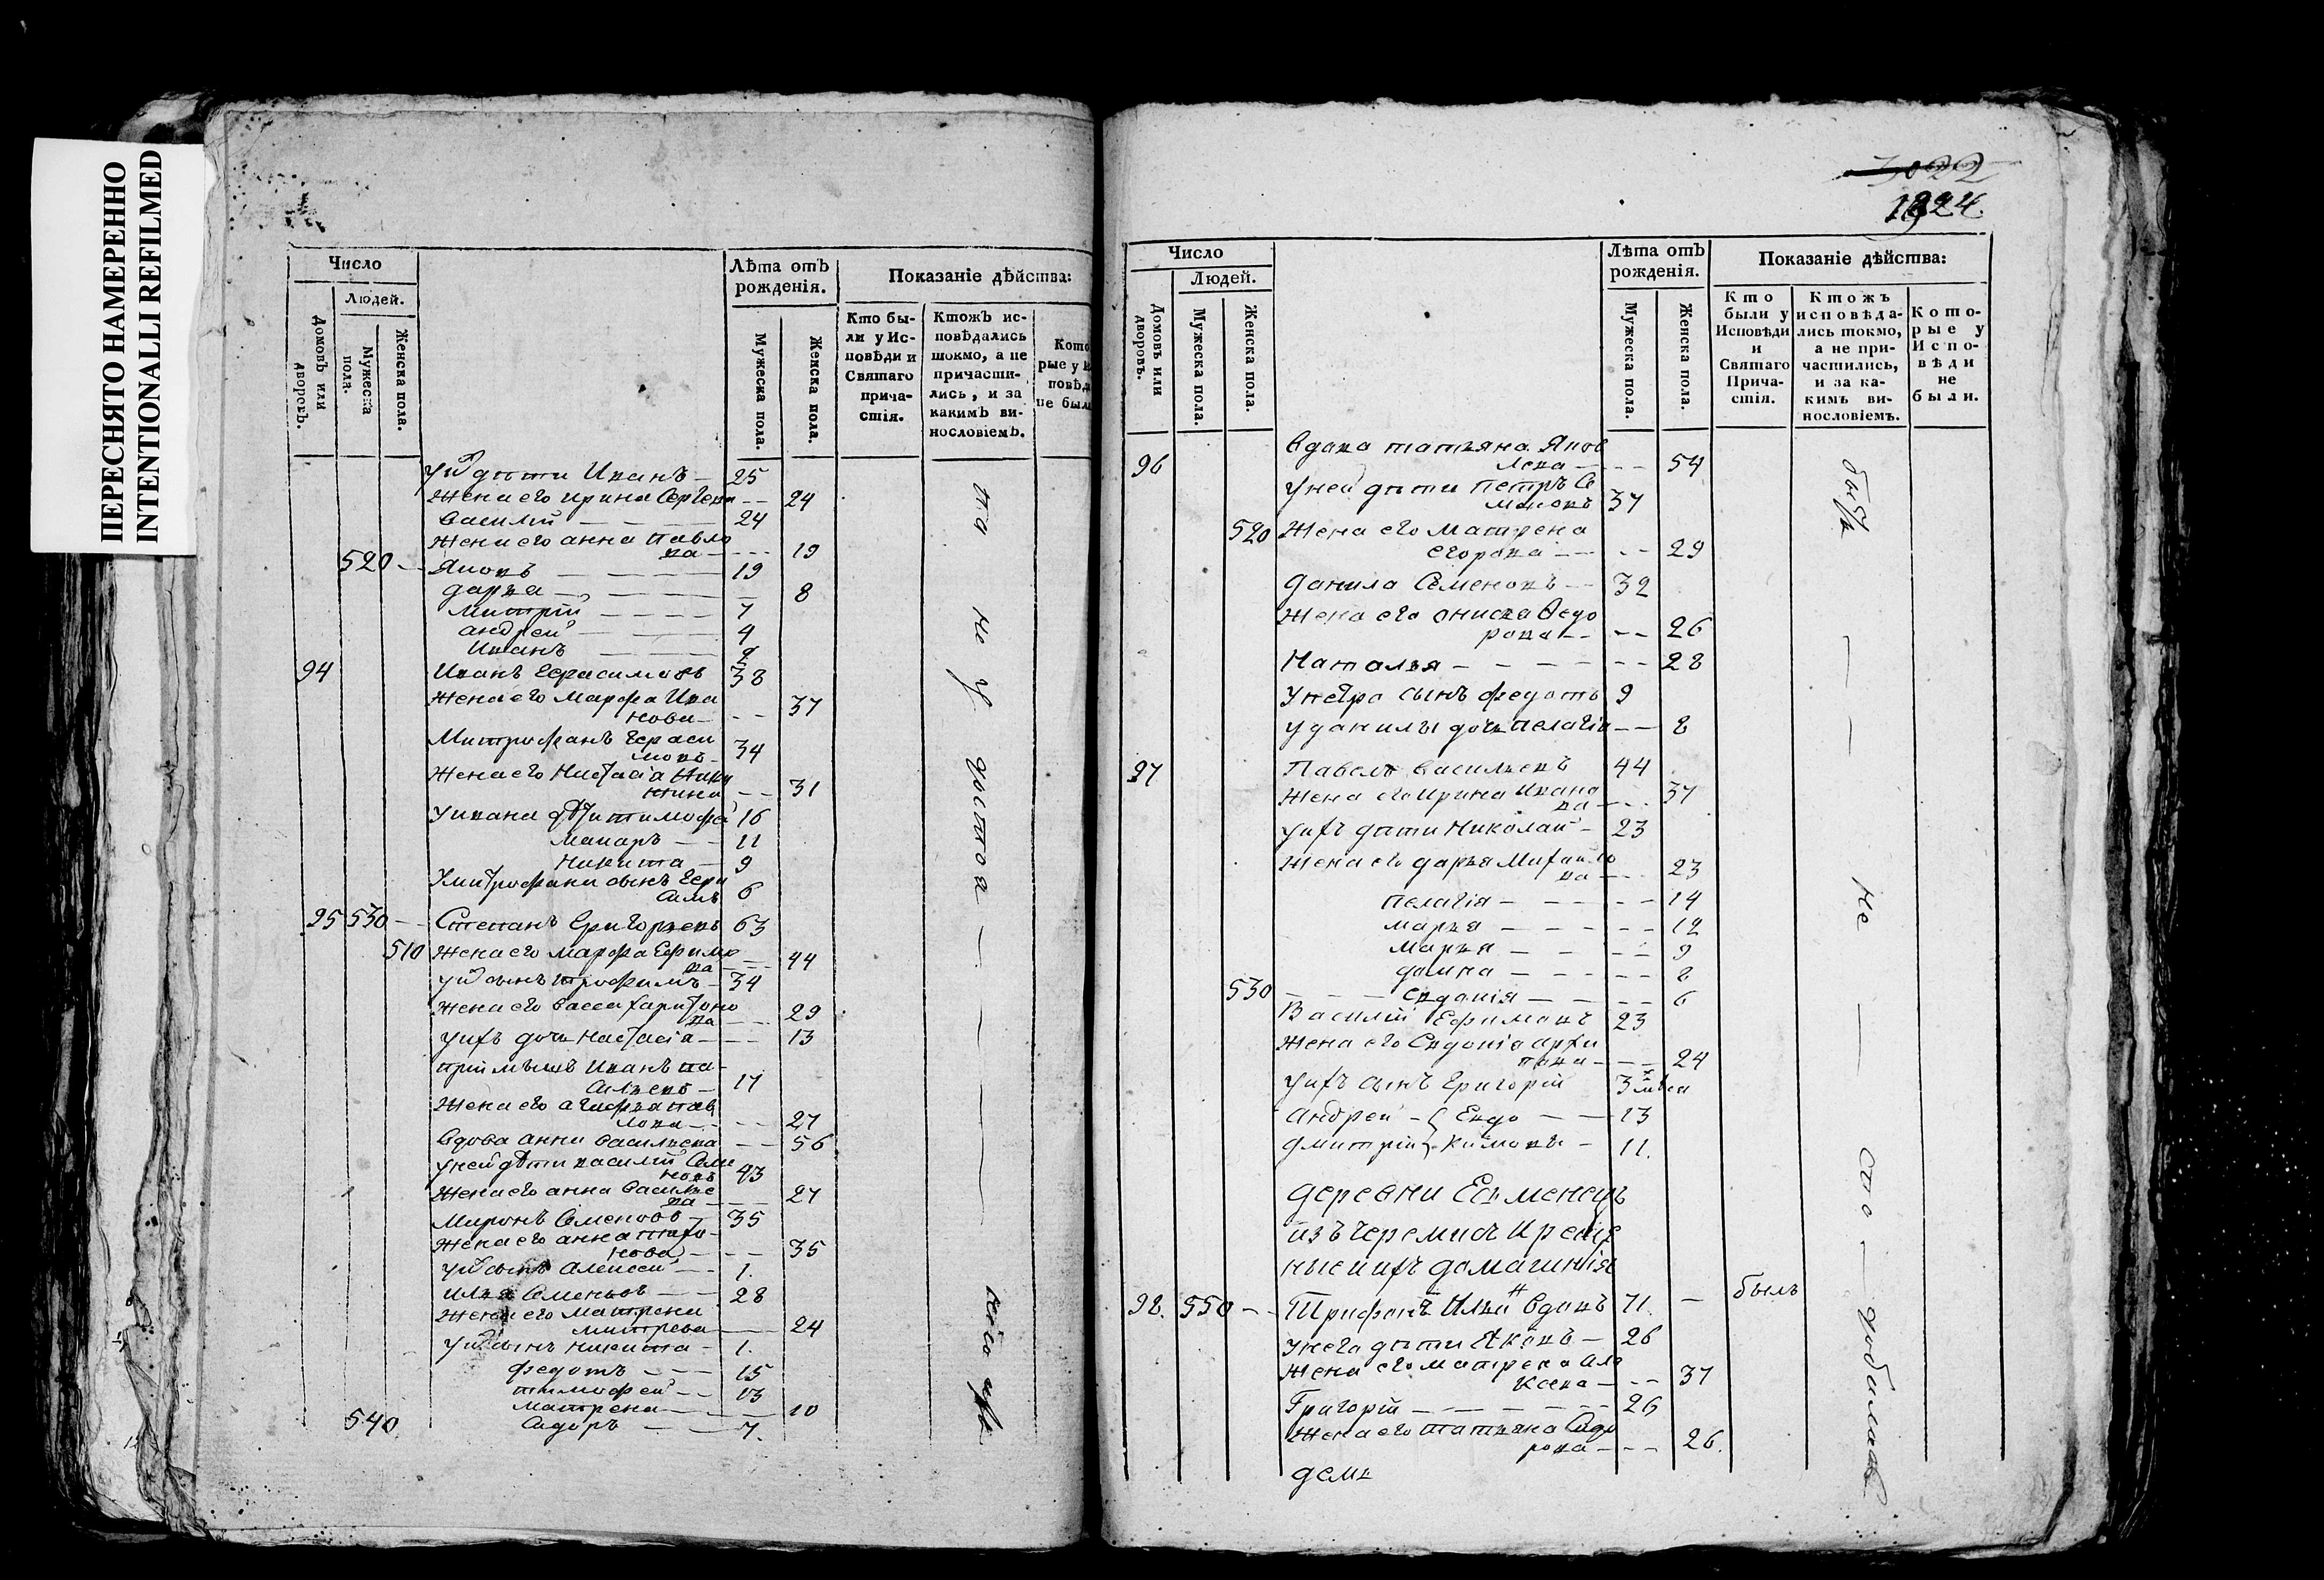 ПЕРЕСНЯТО НАМЕРЕННО
INTENTIONALLI REFILMED
Число
Людей.
Домовъ или дворовъ.
Мужеска пола.
Женска пола.
Лѣта отъ рожденія.
Мужеска пола.
Женска пола.
Показаніе дѣйства:
Кто бы-
ли у Ис-
повѣди и
Святаго
прича-
стія.
Ктожъ ис-
повѣдались
токмо, а не
причасти-
лись, и за
какимъ ви-
нословіемъ.
Кото
рые у И
повѣд
не был
дѣти Иванъ — 25
Жена его Ирина Сергева -- 24
Василій — — 24
Жена его анна Павло
ва — --- 19
520 — Яковъ — — — 19
дарья — — — 8
Митрій — — — 7
андрей — — — 4
Иванъ — — 2
94 Иванъ Герасимовъ 38
Жена его Марфа Ива
нова — -- 37
Митрофанъ Гераси
мовъ — 34
Жена его Настасіа Ники
тина -- 31
Уивана дѣти тимофей 16
Макаръ — — 11
Никита — 9
Умитрофана сынъ Гера
симъ 6
95 530 — Степанъ Григорьевъ 63
510 Жена его марфа Ефимо
ва — 44
сынъ трофимъ — 34
Жена его васса харитоно
ва — 29
Уихъ дочь Настасіа — -- 13
пріимышъ Иванъ ва-
сильевъ — 17
Жена его агафья пав
лова — -- 27
Вдова анна васильева -- 56
Уней дѣти василій Семе
новъ 43
Жена его анна Василье
ва — 27
Миронъ Семеновъ — 35
Жена его анна
нова — -- 35
сынъ алексей — 1.
илья Семеновъ — 28
Жена его матрена
митрева — 24
сынъ никита — 1.
федотъ — — 15
тимофей — — 13
матрена — — 10
540. Сидоръ — — 7.
не у
1824.
Число
Людей.
Домовъ или дворовъ.
Мужеска пола.
Женска пола.
Лѣта отъ рожденія.
Мужеска пола.
Женска пола.
Показаніе дѣйства:
Кто
были у
Исповѣди
и
Святаго
Прича-
стія.
Ктожъ
исповѣда-
лись токмо,
а не при-
частились,
и за ка-
кимъ ви-
нословіемъ.
Кото-
рые у
Испо-
вѣди
не
были.
96 вдова татьяна Яков
лева — -- 54
Уней дѣти Петръ Се
меновъ 37
520 Жена его матрена
егорова — -- 29
данила Семеновъ — 32
Жена его онисья Федо
рова — -- 26
Наталья — — — -- 28
сынъ федотъ 9
Уданилы дочь пелагія -- 8
97 Павелъ васильевъ 44
Жена его Ирина Ивано
ва — -- 37
Уихъ дѣти Николай — 23
Жена его дарья Михайло
ва — -- 23
пелагія — — -- 14
марья — — -- 12
Марья — — -- 9
домна — — -- 8
530 — Евдокія — — -- 6
Василій Ефимовъ 23
Жена его Евдокія архи
пова — -- 24
Уихъ сынъ Григорій 3
андрей — { Евдо — — 13
дмитрій } кимовы — 11.
деревни
изъ черемисъ Креще
ные и ихъ домашнія
98. 550 — Трифонъ Ильи вдовъ 71. — былъ
Унего дѣти Яковъ — 26
Жена его матрена Але
ксева — -- 37
Григорій — — — 26
Жена его татьяна Сидо
рова — -- 26.
деме
не